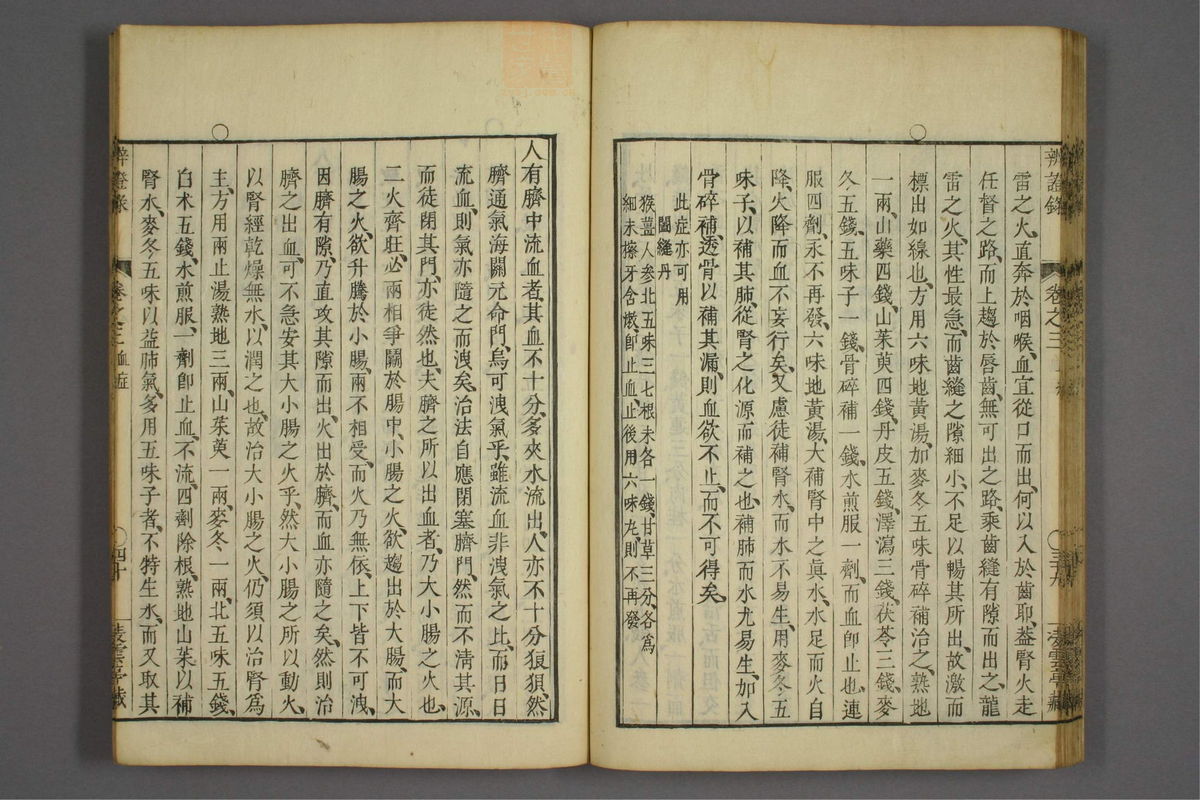 辨證錄 卷之三 三十九
雷之火直奔於咽喉血宜從口而出何以入於齒耶蓋腎火走
任督之路而上趨於唇齒無可出之路乘齒縫有隙而出之龍
雷之火其性最急而齒縫之隙細小不足以暢其所出故激而
標出如線也方用六味地黃湯加麥冬五味骨碎補治之熟地
一兩山藥四錢山茱萸四錢丹皮五錢澤瀉三錢茯苓三錢麥
冬五錢五味子一錢骨碎補一錢水煎服一劑而血即止也連
服四劑永不再發六味地黃湯大補腎中之眞水水足而火自
降火降而血不妄行矣又慮徒補腎水而水不易生用麥冬五
味子以補其肺從腎之化源而補之也補肺而水尤易生加入
骨碎補透骨以補其漏則血欲不止而不可得矣
此症亦可用
闔縫丹
猴薑人參北五味三七根末各一錢甘草三分各爲
細末擦牙含漱即止血止後用六味丸則不再發
人有臍中流血者其血不十分多夾水流出人亦不十分狼狽然
臍通氣海關元命門烏可洩氣乎雖流血非洩氣之比而日日
流血則氣亦隨之而洩矣治法自應閉塞臍門然而不清其源
而徒閉其門亦徒然也夫臍之所以出血者乃大小腸之火也
二火齊旺必兩相爭鬬於腸中小腸之火欲趨出於大腸而大
腸之火欲升騰於小腸兩不相受而火乃無依上下皆不可洩
因臍有隙乃直攻其隙而出火出於臍而血亦隨之矣然則治
臍之出血可不急安其大小腸之火乎然大小腸之所以動火
以腎經乾燥無水以潤之也故治大小腸之火仍須以治腎爲
主方用兩止湯熟地三兩山茱萸一兩麥冬一兩北五味五錢
白朮五錢水煎服一劑即止血不流四劑除根熟地山茱以補
腎水麥冬五味以益肺氣多用五味子者不特生水而又取其
辨證錄 卷之三 血症 四十